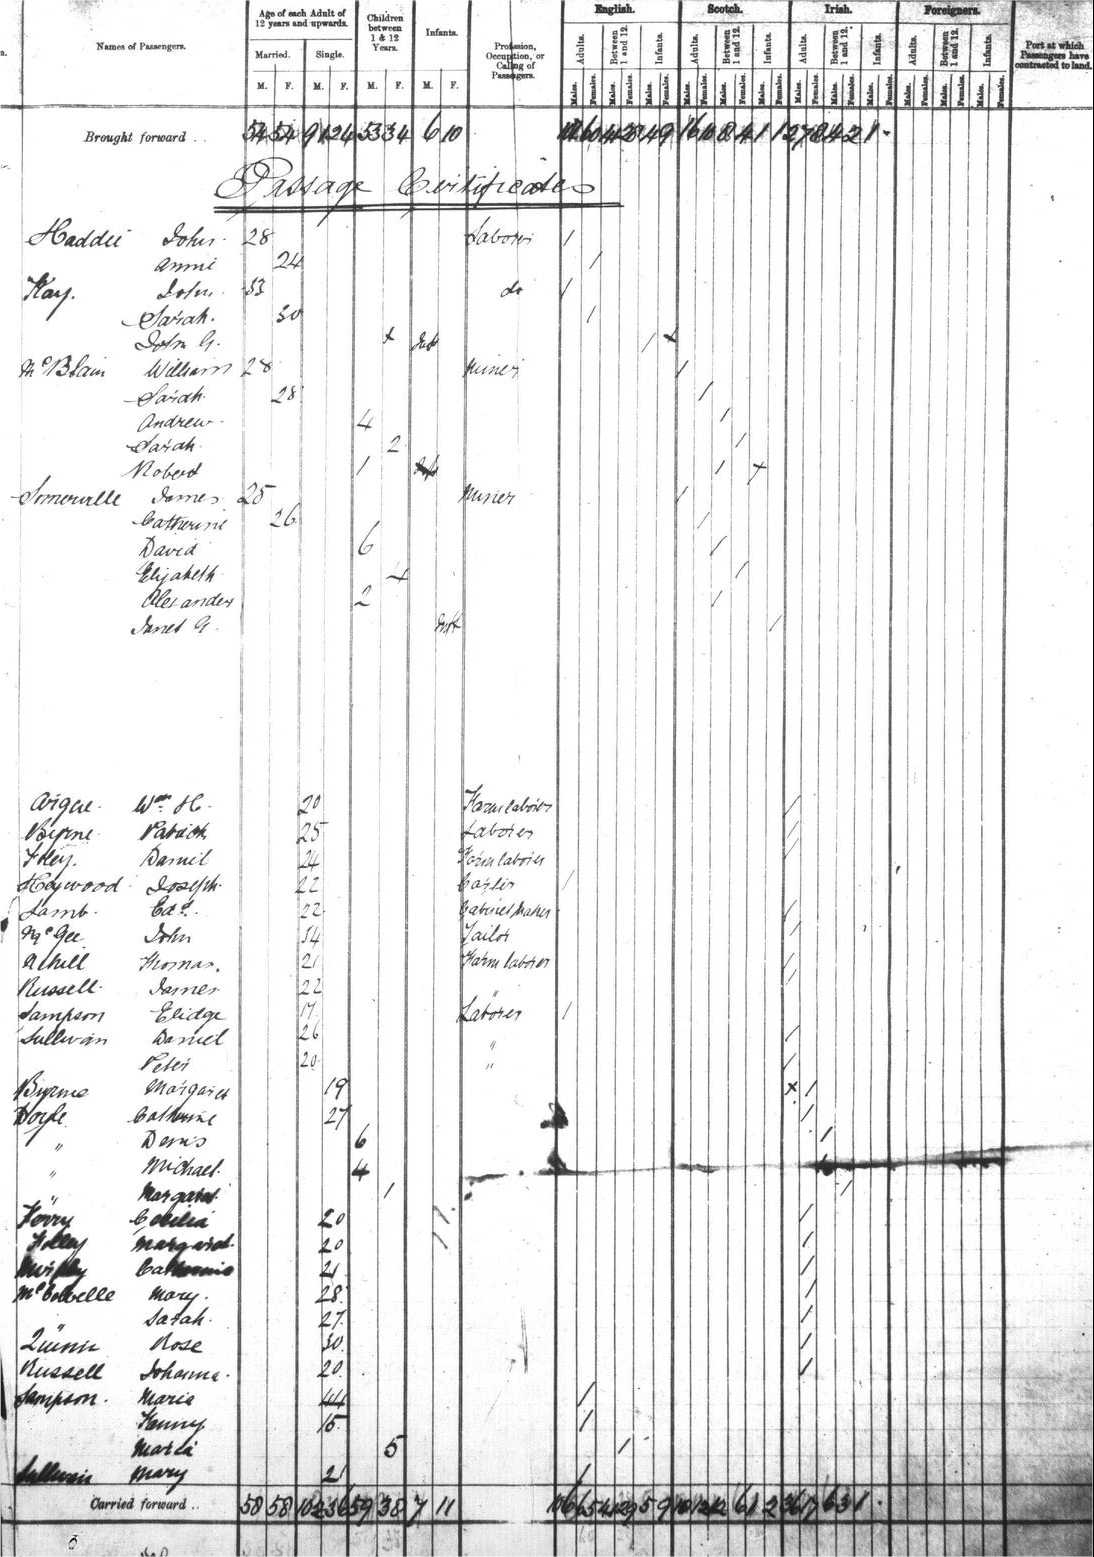 Names of Passengers.
Age of each Adult of 12 years and upwards.
Married. Single.
M. F. M. F.
Children between 1 & 12 Years.
M. F.
Infants.
M. F.
Profession, Occupation, or Calling of Passengers.
English. Scotch. Irish. Foreigners.
Adults. Between 1 and 12. Infants. Adults. Between 1 and 12. Infants. Adults. Between 1 and 12. Infants. Adults. Between 1 and 12. Infants.
Males. Females. Males. Females. Males. Females. Males. Females. Males. Females. Males. Females. Males. Females. Males. Females. Males. Females. Males. Females. Males. Females. Males. Females.
Port at which Passengers have contracted to land.
Brought forward .. 54 54 53 34 6 10
Passage Certificates
Haddie John 28 Laborer 1
Annie 24 1
Kay. John 33 do 1
Sarah. 30 1
John G. Inft 1
McBlain William 28 Miner 1
Sarah 28 1
Andrew 4 1
Sarah 2 1
Robert 1 1
Somerville James 25 Miner 1
Catherine 26 1
David 6 1
Elizabeth 4 1
Alexander 2 1
Janet G. Inft 1
Wm H. 20 Farm laborer 1
Byrne Patrick 25 Laborer 1
Daniel 24 Farm laborer 1
Heywood Joseph 22 Carter 1
Lamb Edd. 22 Cabinet Maker 1
McGee John 34 Tailor 1
Thomas. 21 Farm laborer 1
Russell James 22 " 1
Sampson Elidge 17 Laborer 1
Sullivan Daniel 26 " 1
Peter 20 " 1
Byrne Margaret 19 x 1
Doyle Catherine 27 1
" Denis 6 1
" Michael 4 1
" Margaret 1 1
Cecilia 20 1
Margaret 20 1
Murphy Catherine 21 1
Mary. 28 1
" Sarah. 27 1
Quinn Rose 30 1
Russell Johanna 20 1
Sampson Maria 44 1
15 1
Maria 5 1
Sullivan Mary 21 1
Carried forward .. 58 58 59 38 7 11